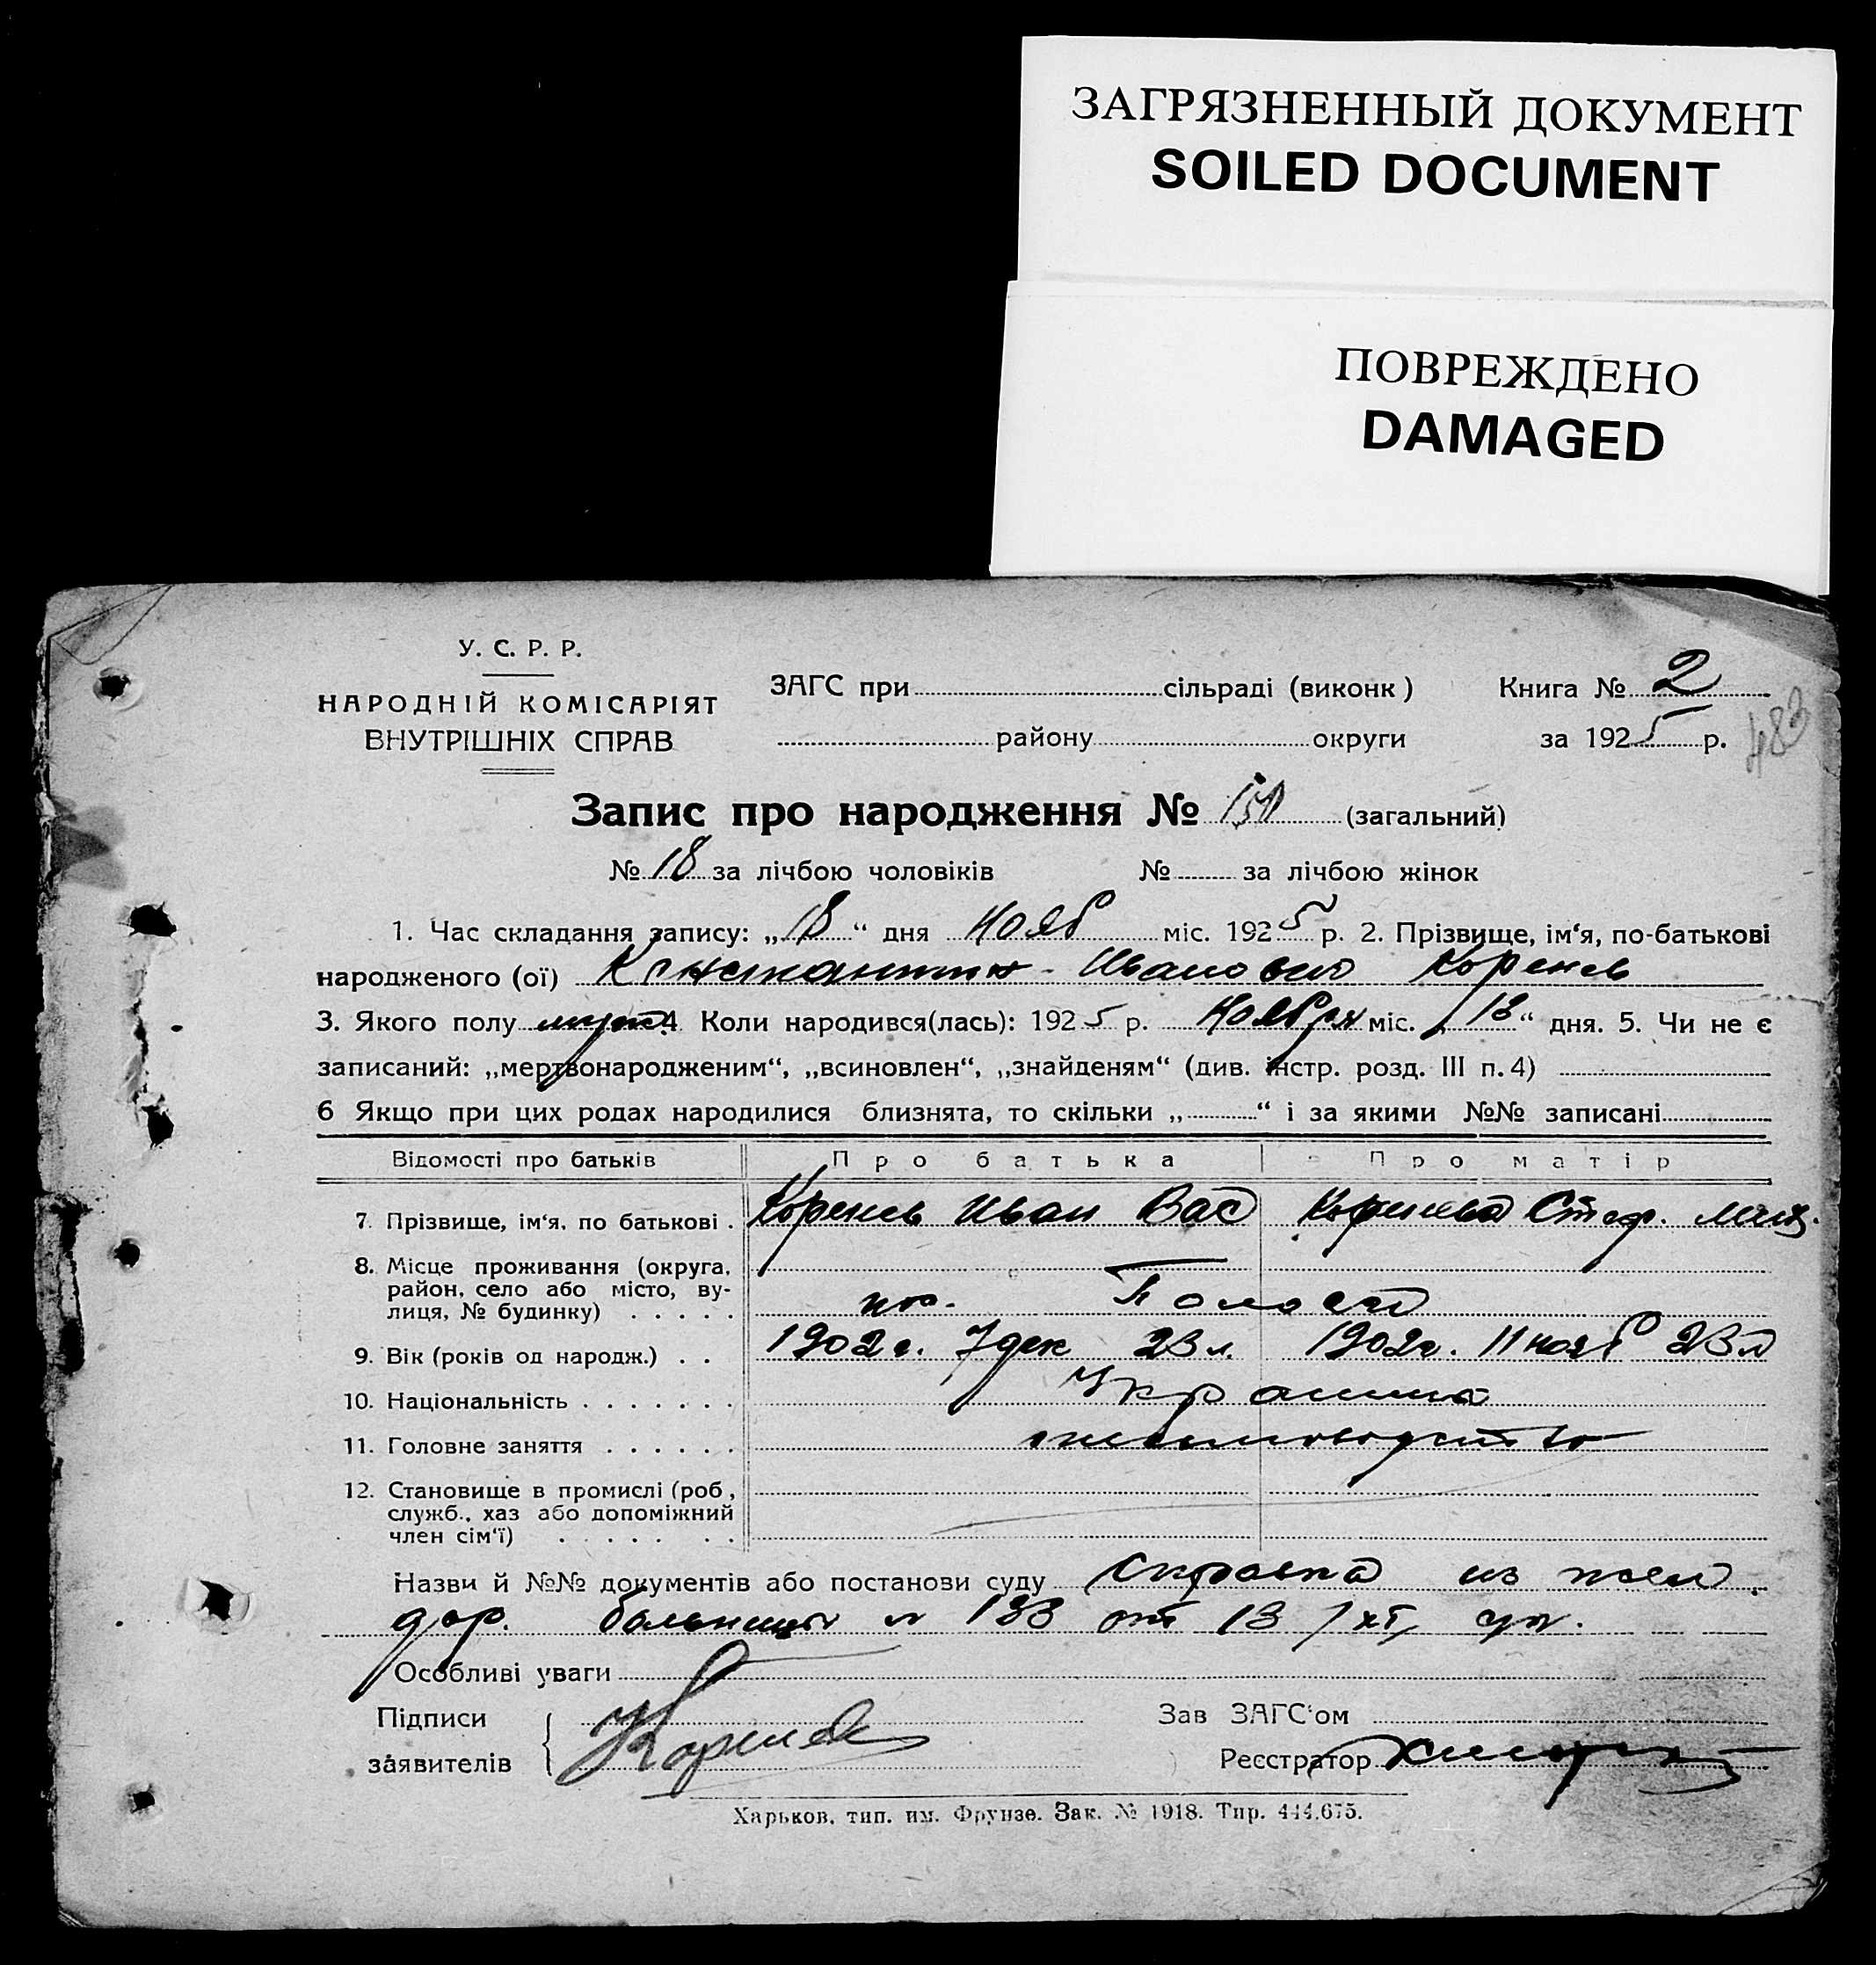 ЗАГРЯЗНЕННЫЙ ДОКУМЕНТ
SOILED DOCUMENT
ПОВРЕЖДЕНО
DAMAGED
У. С. Р. Р.
НАРОДНІЙ КОМІСАРІЯТ
ВНУТРІШНІХ СПРАВ
ЗАГС при сільраді (виконк) Книга № 2
району округи за 1925 р.
483
Запис про народження № (загальний)
№ 18 за лічбою чоловіків № за лічбою жінок
1. Час складання запису: „18“ дня Нояб міс. 1925 р. 2. Прізвище, ім‘я, по-батькові
народженого (ої) Константин Иванович Коренев
3. Якого полу муж. 4 Коли народився(лась): 1925 р. Ноября міс. „13“ дня. 5. Чи не є
записаний: „мертвонародженим“, „всиновлен“, „знайденям“ (див. інстр. розд. III п. 4)
6 Якщо при цих родах народилися близнята, то скільки „ “ і за якими №№ записані
Відомості про батьків Про батька Про матір
7. Прізвище, ім‘я, по батькові . Коренев Иван Вас Коренева Стеф.
8. Місце проживання (округа,
район, село або місто, ву-
лиця, № будинку) . . . . . пос.
9. Вік (років од народж.) . . 1902 г. 7 дек 23 л. 1902 г. 11 нояб 23 л
10. Національність . . . . . . .
11. Головне заняття . . . . . .
12. Становище в промислі (роб.,
служб., хаз або допоміжний
член сім‘ї) . . . . . . .
Назви й №№ документів або постанови суду справка из жел.
дор. больницы № 133 от 13/XI
Особливі уваги
Підписи Зав ЗАГС‘ом
заявителів Коренев Реєстратор
Харьков, тип. им. Фрунзе. Зак. № 1918. Тир. 444.675.